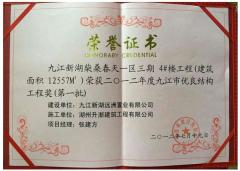 荣誉证书
HONORARY CREDENTIAL
九江新湖柴桑春天一区三期 4#楼工程(建筑
面积 12557M²)荣获二〇一二年度九江市优良结构
工程奖(第一批)
建设单位:九江新湖远洲置业有限公司
施工单位:湖州升浙建筑工程有限公司
项目经理:张建方
二〇一二年七月十九日